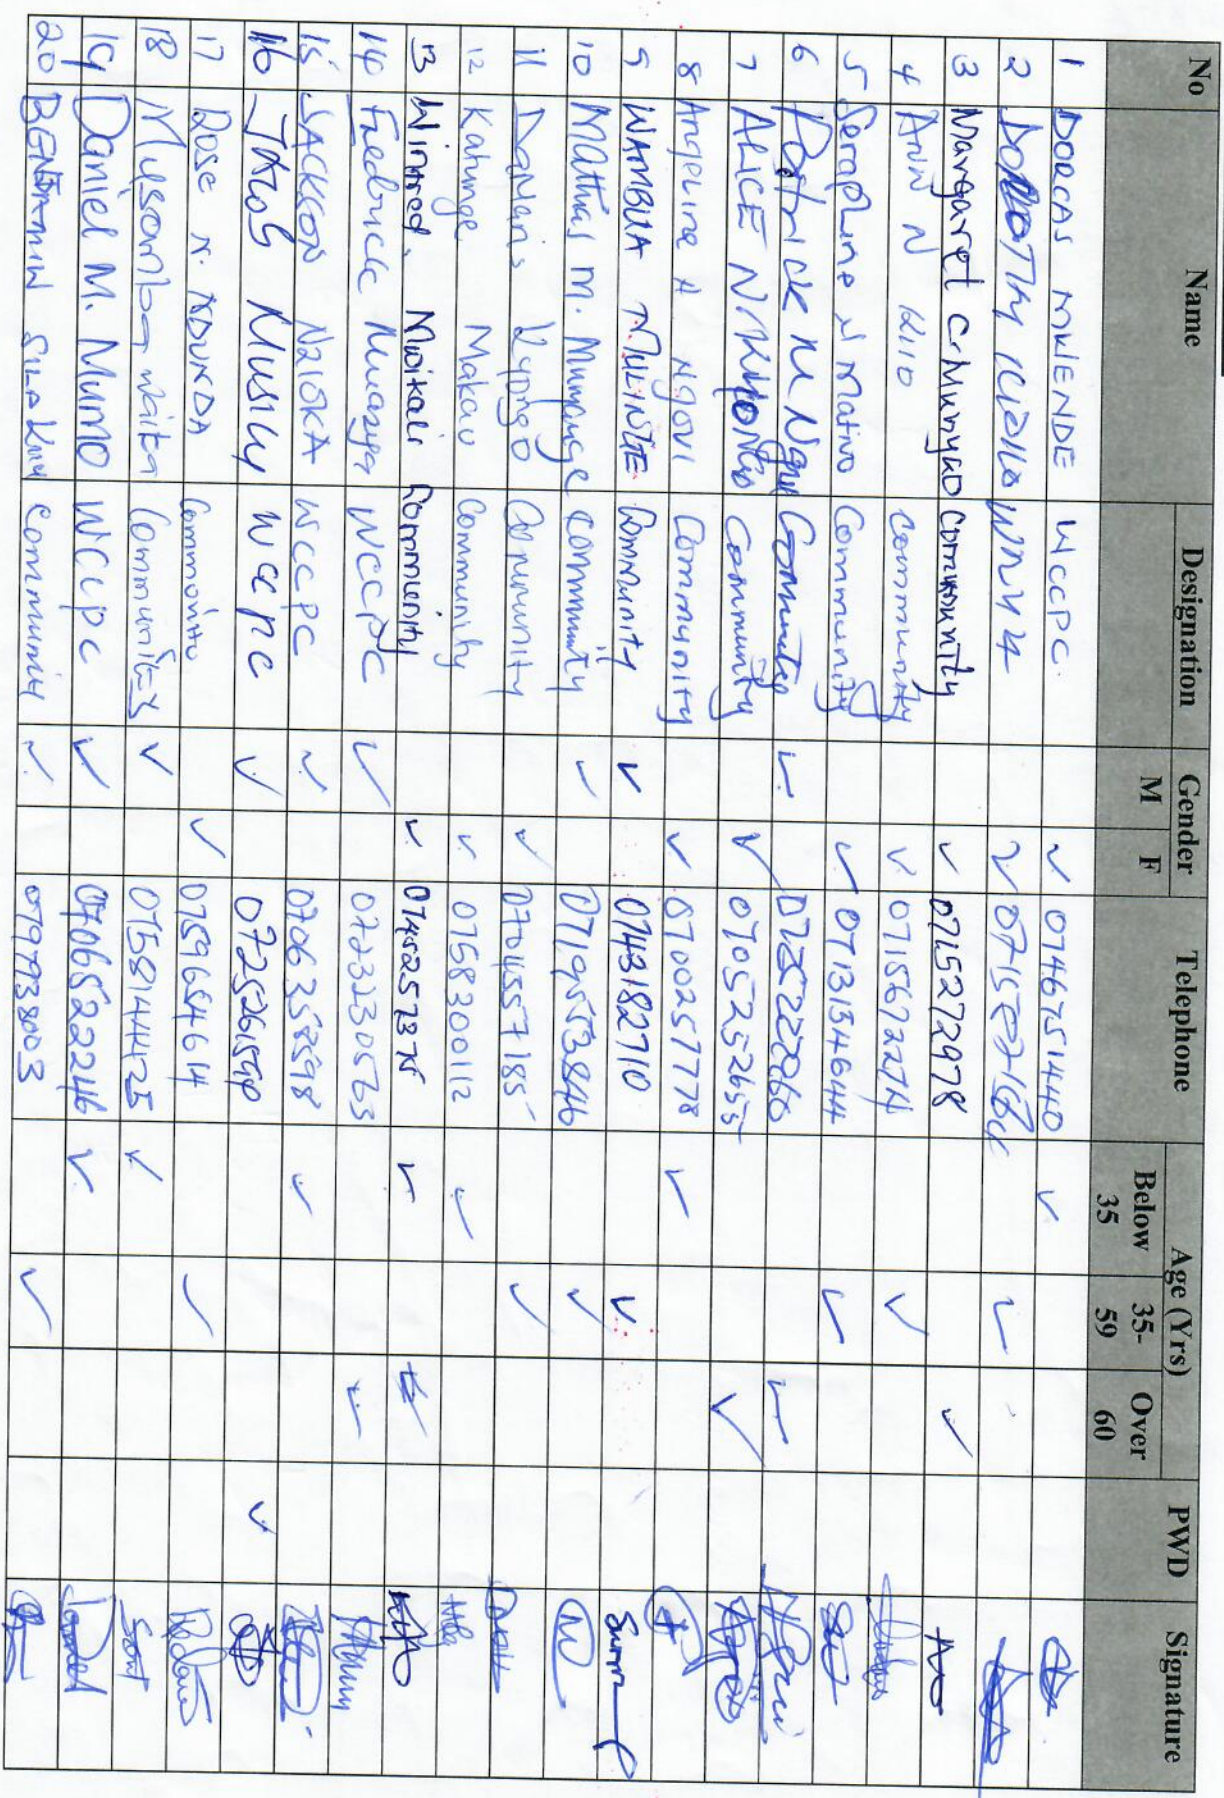 No Name Designation Gender M F Telephone Age (Yrs) Below 35 35-59 Over 60 PWD Signature
1 DORCAS MWENDE WCCPC. ✓ 0746751440 ✓
2 DOROTHY ✓ ✓
3 Margaret C. Munyao Community ✓ 0715272978 ✓
4 ANN N KIIO Community ✓ 0715672274 ✓
5 Seraphine N Mativo Community ✓ 0713134644 ✓
6 Patrick M Community ✓ ✓
7 ALICE N. Community ✓ 0705252655 ✓
8 Angelina N NGOVI Community ✓ 0700257778 ✓
9 WAMBUA MULINGE Community ✓ 0743182710 ✓
10 Mathias M. Munyange Community ✓ 0719553846 ✓
11 Damaris Kyongo Community ✓ 0704557185 ✓
12 Katunge Makau Community ✓ 0758300112 ✓
13 Winfred. Mwikali Community ✓ ✓
14 Fredrick Muasya WCCPC ✓ 0723230563 ✓
15 JACKSON NZIOKA WCCPC ✓ 0706358598 ✓
16 Musily WCPC ✓ ✓
17 Rose N. NDUNDA ✓ 0759654614 ✓
18 Musomba Community ✓ 0758144425 ✓
19 Daniel M. Mumo WCCPC ✓ 0706522246 ✓
20 BENJAMIN SILA Community ✓ 0799380003 ✓